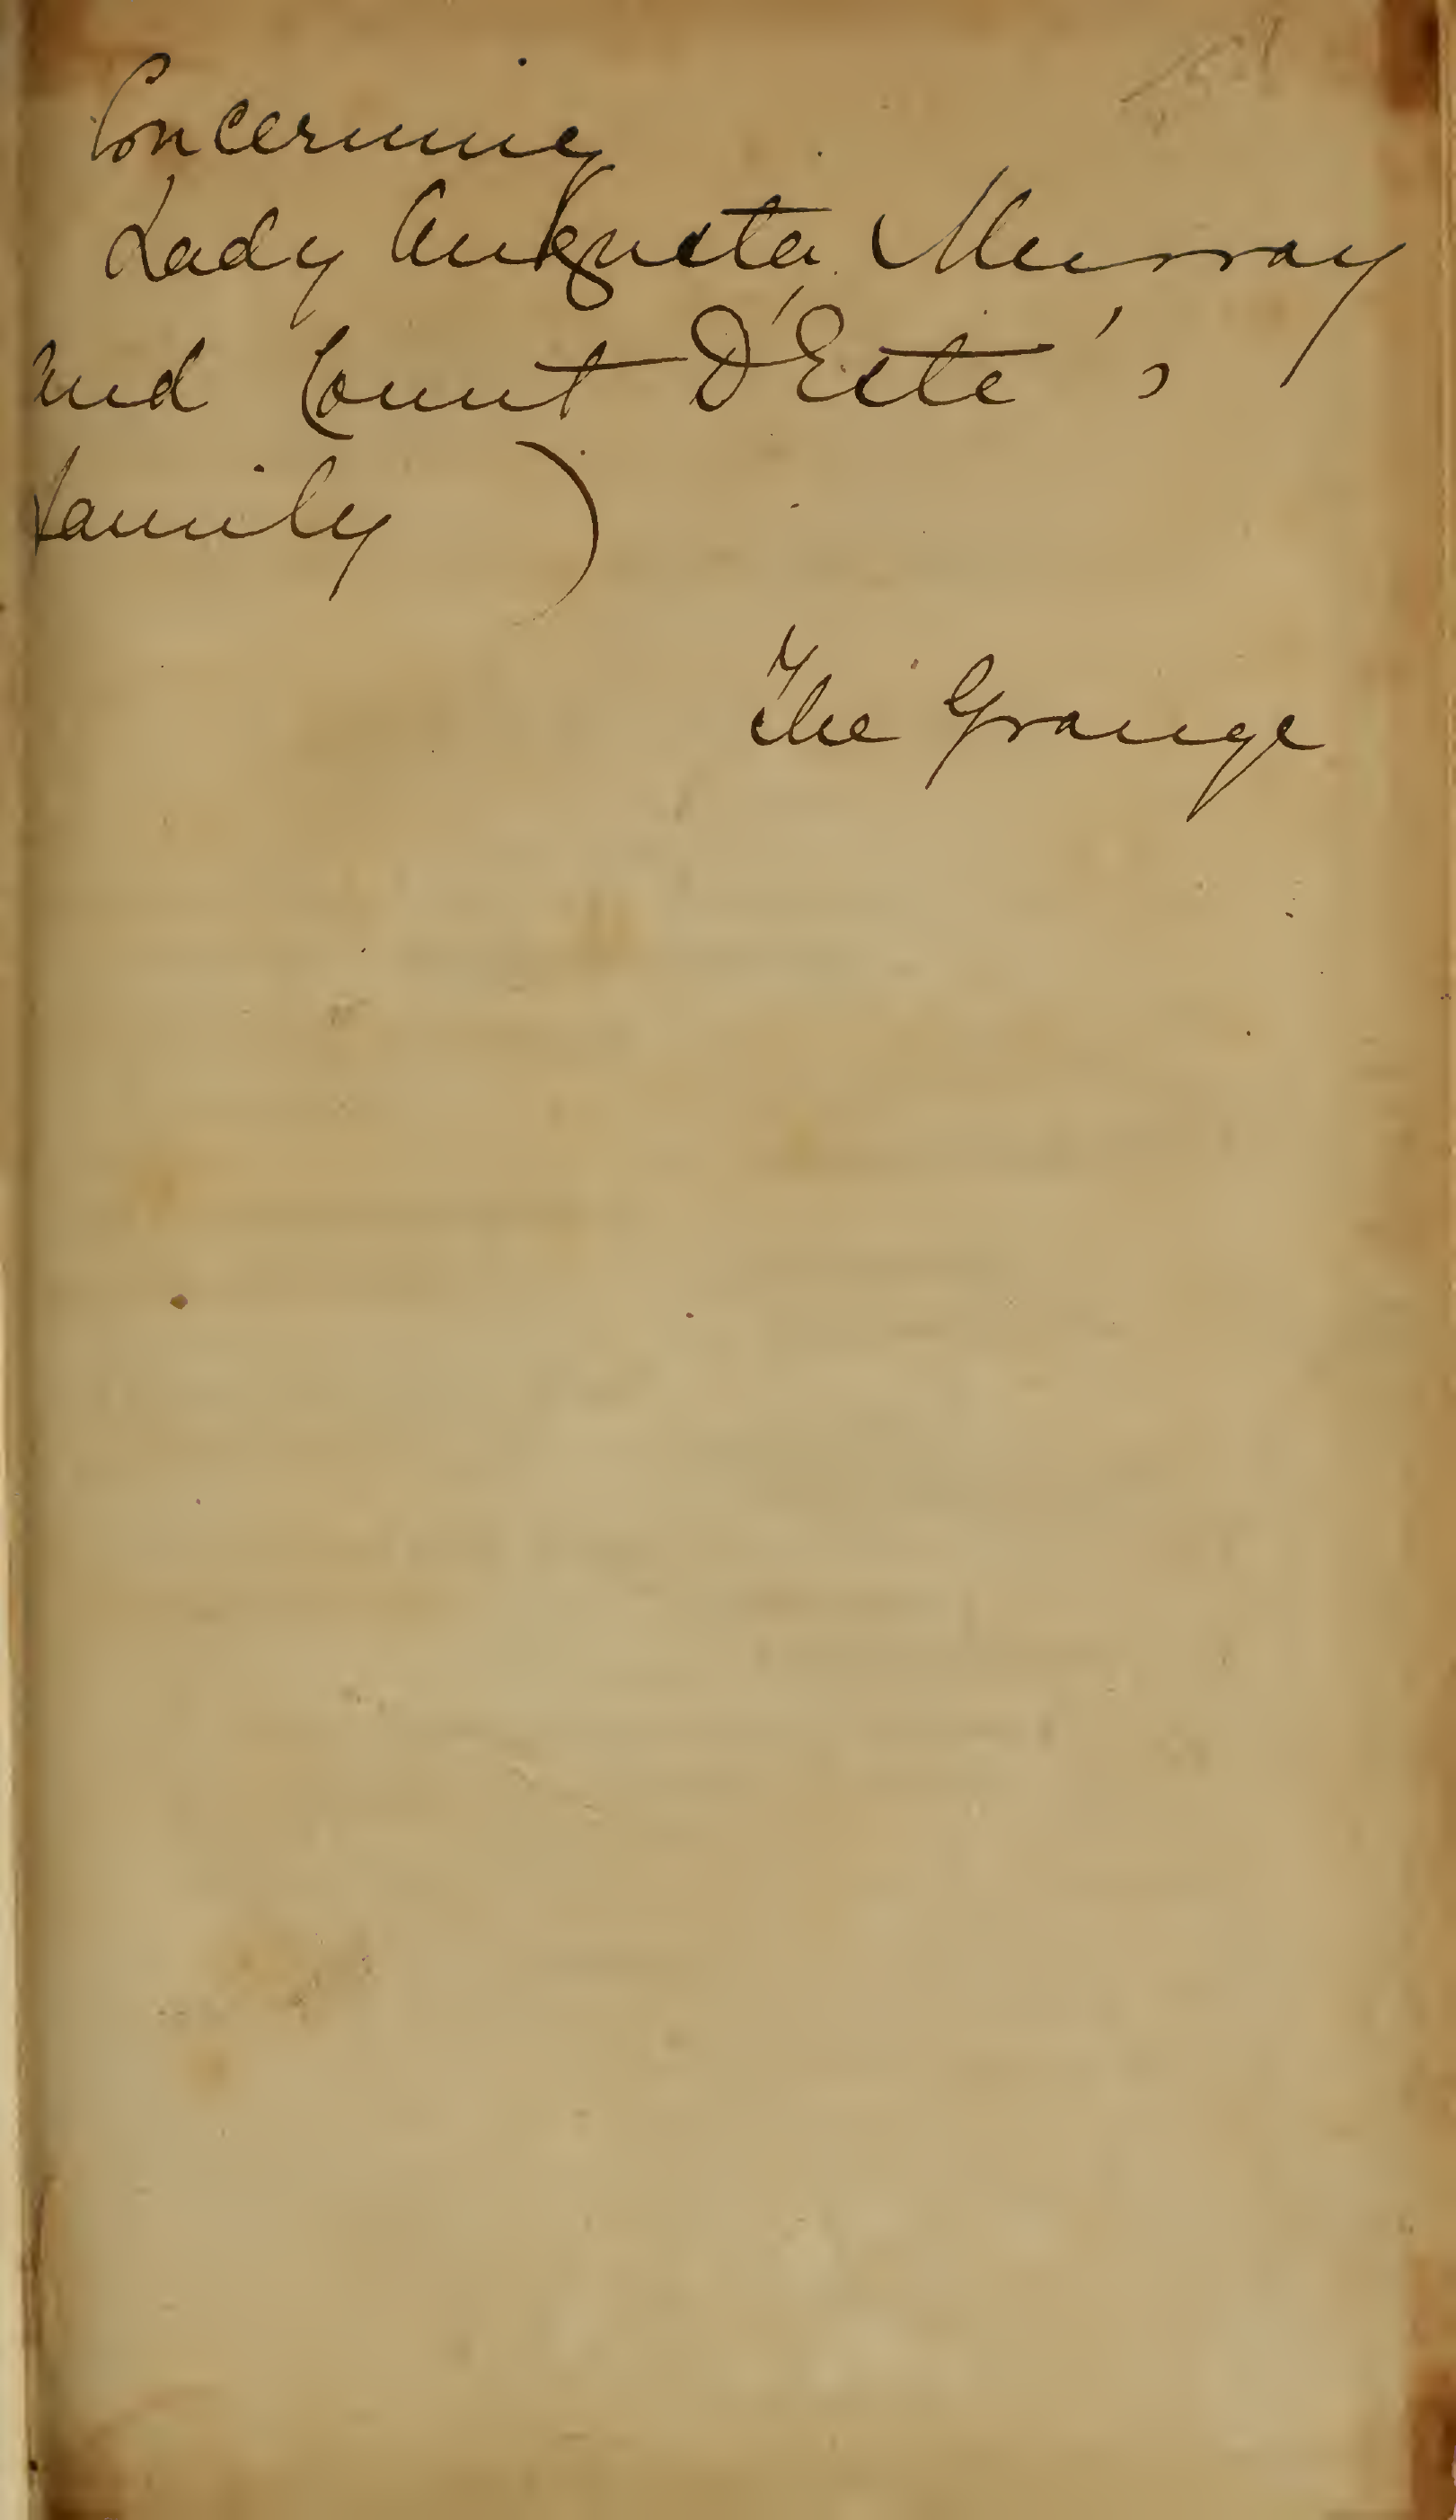 Concerning
Lady Augusta Murray
and Count D'Este's
family )
The Grange